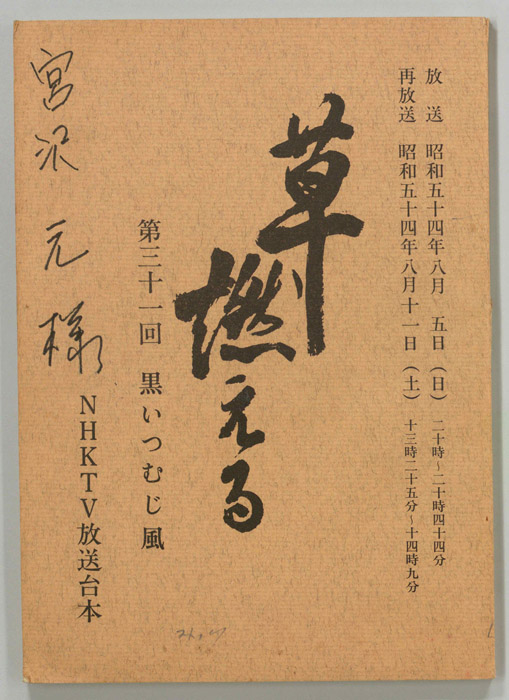 放送 昭和五十四年八月 五日(日) 二十時〜二十時四十四分
再放送 昭和五十四年八月十一日(土) 十三時二十五分〜十四時九分
草燃える
第三十一回 黒いつむじ風
NHKTV放送台本
宮沢 元 様